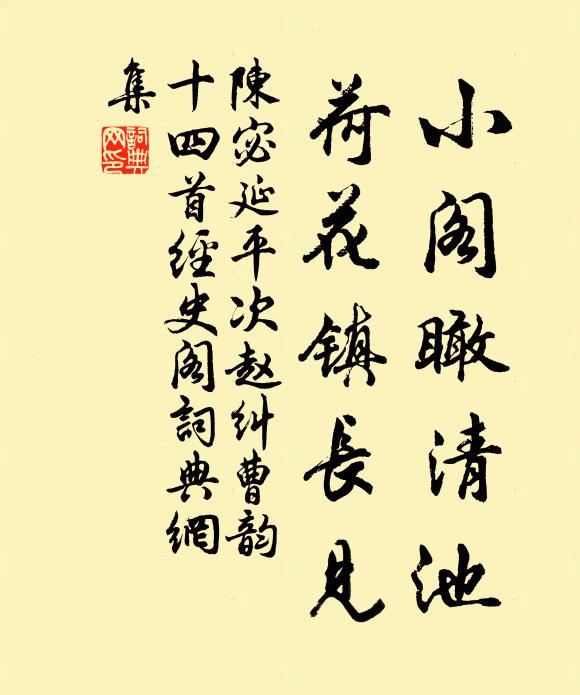 小阁瞰清池
荷花镇長見
陳宓延平次赵纠曹韵
十四首經史阁詞典網
集
詞典网印